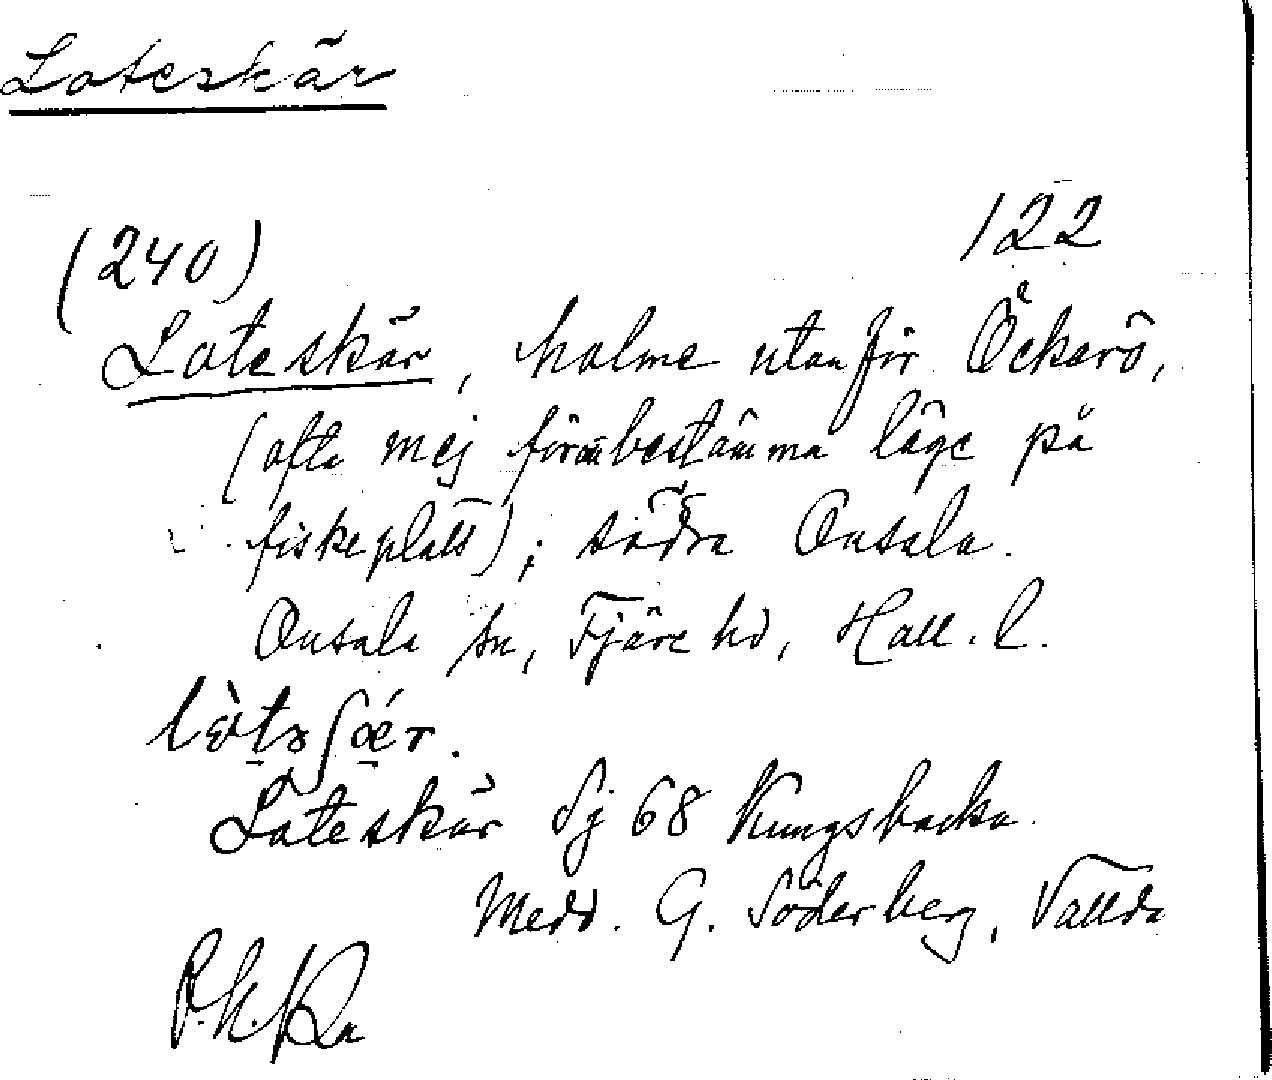 Loteskär
(240) 122
Loteskär, holme utanför Öckerö,
(ofta mej för att bestämma läge på
fiskeplats); södra Onsala.
Onsala sn, Fjäre hd, Hall. l.
Loteskär Sj 68 Kungsbacka.
Medd. G. Söderberg, Vallda